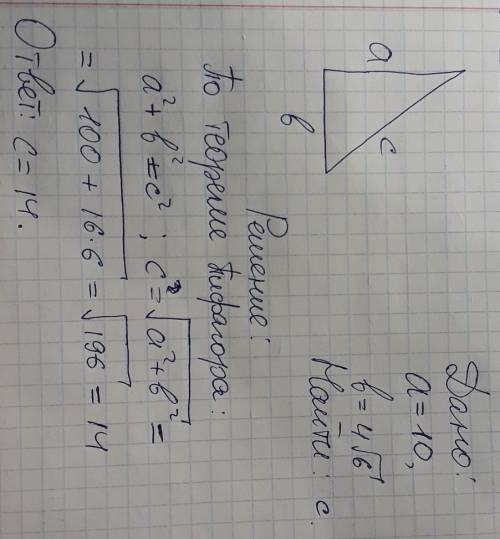 Дано:
a=10,
b=4√6
Найти: c.
a
c
b
Решение:
По теореме Пифагора:
a²+b²=c²; c=√a²+b² =
=√100+16·6 =√196 = 14
Ответ: c=14.